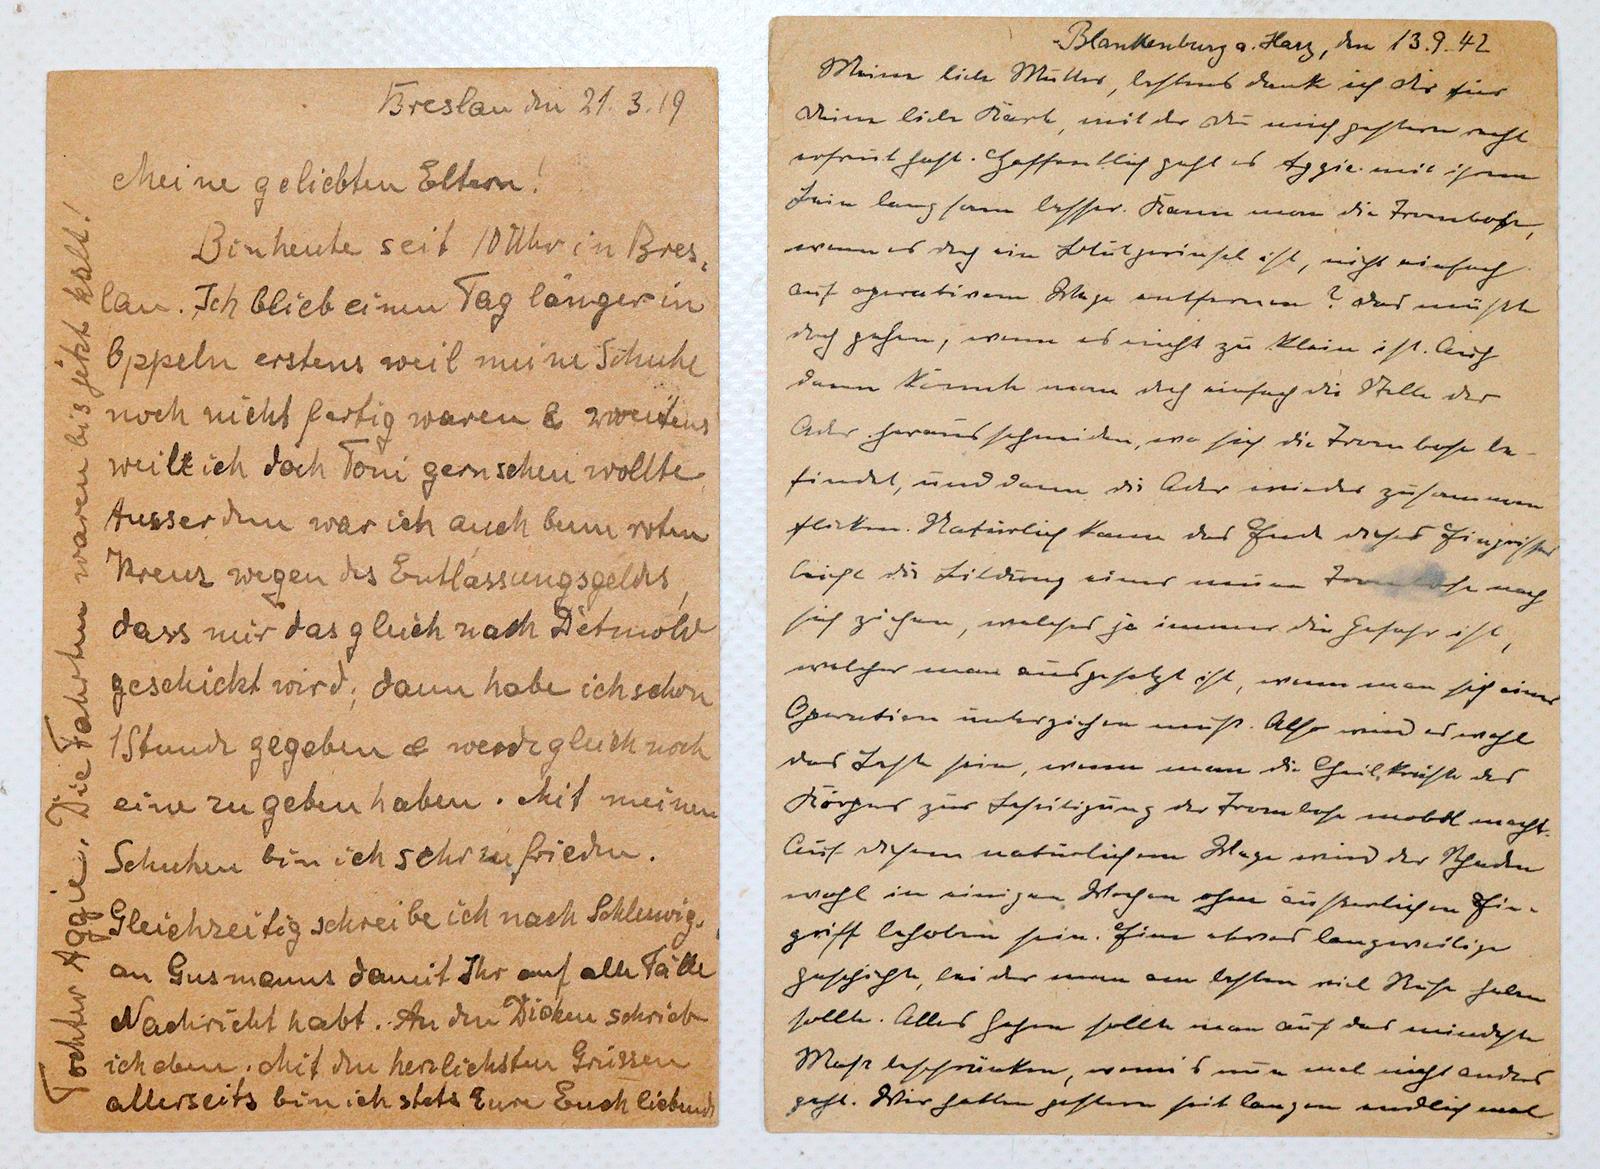 Breslau den 21.3.19
Meine geliebten Eltern!
Bin heute seit 10 Uhr in Bres-
lau. Ich blieb einen Tag länger in
Oppeln erstens weil meine Schuhe
noch nicht fertig waren & zweitens
weil ich doch Toni gern sehen wollte.
Ausserdem war ich auch beim roten
Kreuz wegen des Entlassungsgeldes,
dass mir das gleich nach Detmold
geschickt wird; dann habe ich schon
1 Stunde gegeben & werde gleich noch
eine zu geben haben. Mit meinen
Schuhen bin ich sehr zufrieden.
Gleichzeitig schreibe ich nach Schleswig
an Gusmanns damit Ihr auf alle Fälle
Nachricht habt. An den Dicken schrieb
ich eben. Mit den herzlichsten Grüssen
allerseits bin ich stets Eure Euch liebende
Tochter Aggie. Die Fahrten waren bis jetzt kalt!
Blankenburg a. Harz, den 13.9.42
Meine liebe Mutter, bestens dank ich Dir für
Deine liebe Karte, mit der Du mich gestern recht
erfreut hast. Hoffentlich geht es Aggie mit ihrem
Bein langsam besser. Kann man die Trombose,
wenn es doch ein Blutgerinsel ist, nicht einfach
auf operativem Wege entfernen? Das müßte
doch gehen, wenn es nicht zu klein ist. Auch
dann könnte man doch einfach die Stelle der
Ader herausschneiden, wo sich die Trombose be-
findet, und dann die Ader wieder zusammen
flicken. Natürlich kann das Ende dieses Eingriffes
leicht die Bildung einer neuen Trombose nach
sich ziehen, welches ja immer die Gefahr ist,
welcher man ausgesetzt ist, wenn man sich einer
Operation unterziehen muß. Also wird es wohl
das Beste sein, wenn man die Heilkräfte des
Körpers zur Beseitigung der Trombose mobil macht.
Auf diesem natürlichem Wege wird der Schaden
wohl in einigen Wochen ohne äußerlichen Ein-
griff behoben sein. Eine etwas langweilige
Geschichte, bei der man am besten viel Ruhe haben
sollte. Alles Gehen sollte man auf das mindeste
Maß beschränken, wenn's nun mal nicht anders
geht. Wir hatten gestern seit langem endlich mal